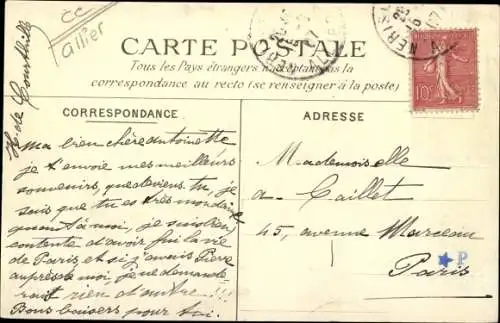 CC
Allier
CARTE POSTALE
Tous les Pays étrangers n'acceptent pas la
correspondance au recto (se renseigner à la poste)
10c
H. de Courthille
CORRESPONDANCE
Ma bien chère Antoinette
je t'envoie mes meilleurs
souvenirs, que deviens tu, je
sais que tu es très mondaine
quant à moi, je suis bien
contente d'avoir fui la vie
de Paris et si j'avais Pierre
auprès de moi, je ne demande-
rait rien d'autre !!!
Bons baisers pour toi.
ADRESSE
Mademoiselle
A. Caillet
45, avenue Marceau
Paris
P